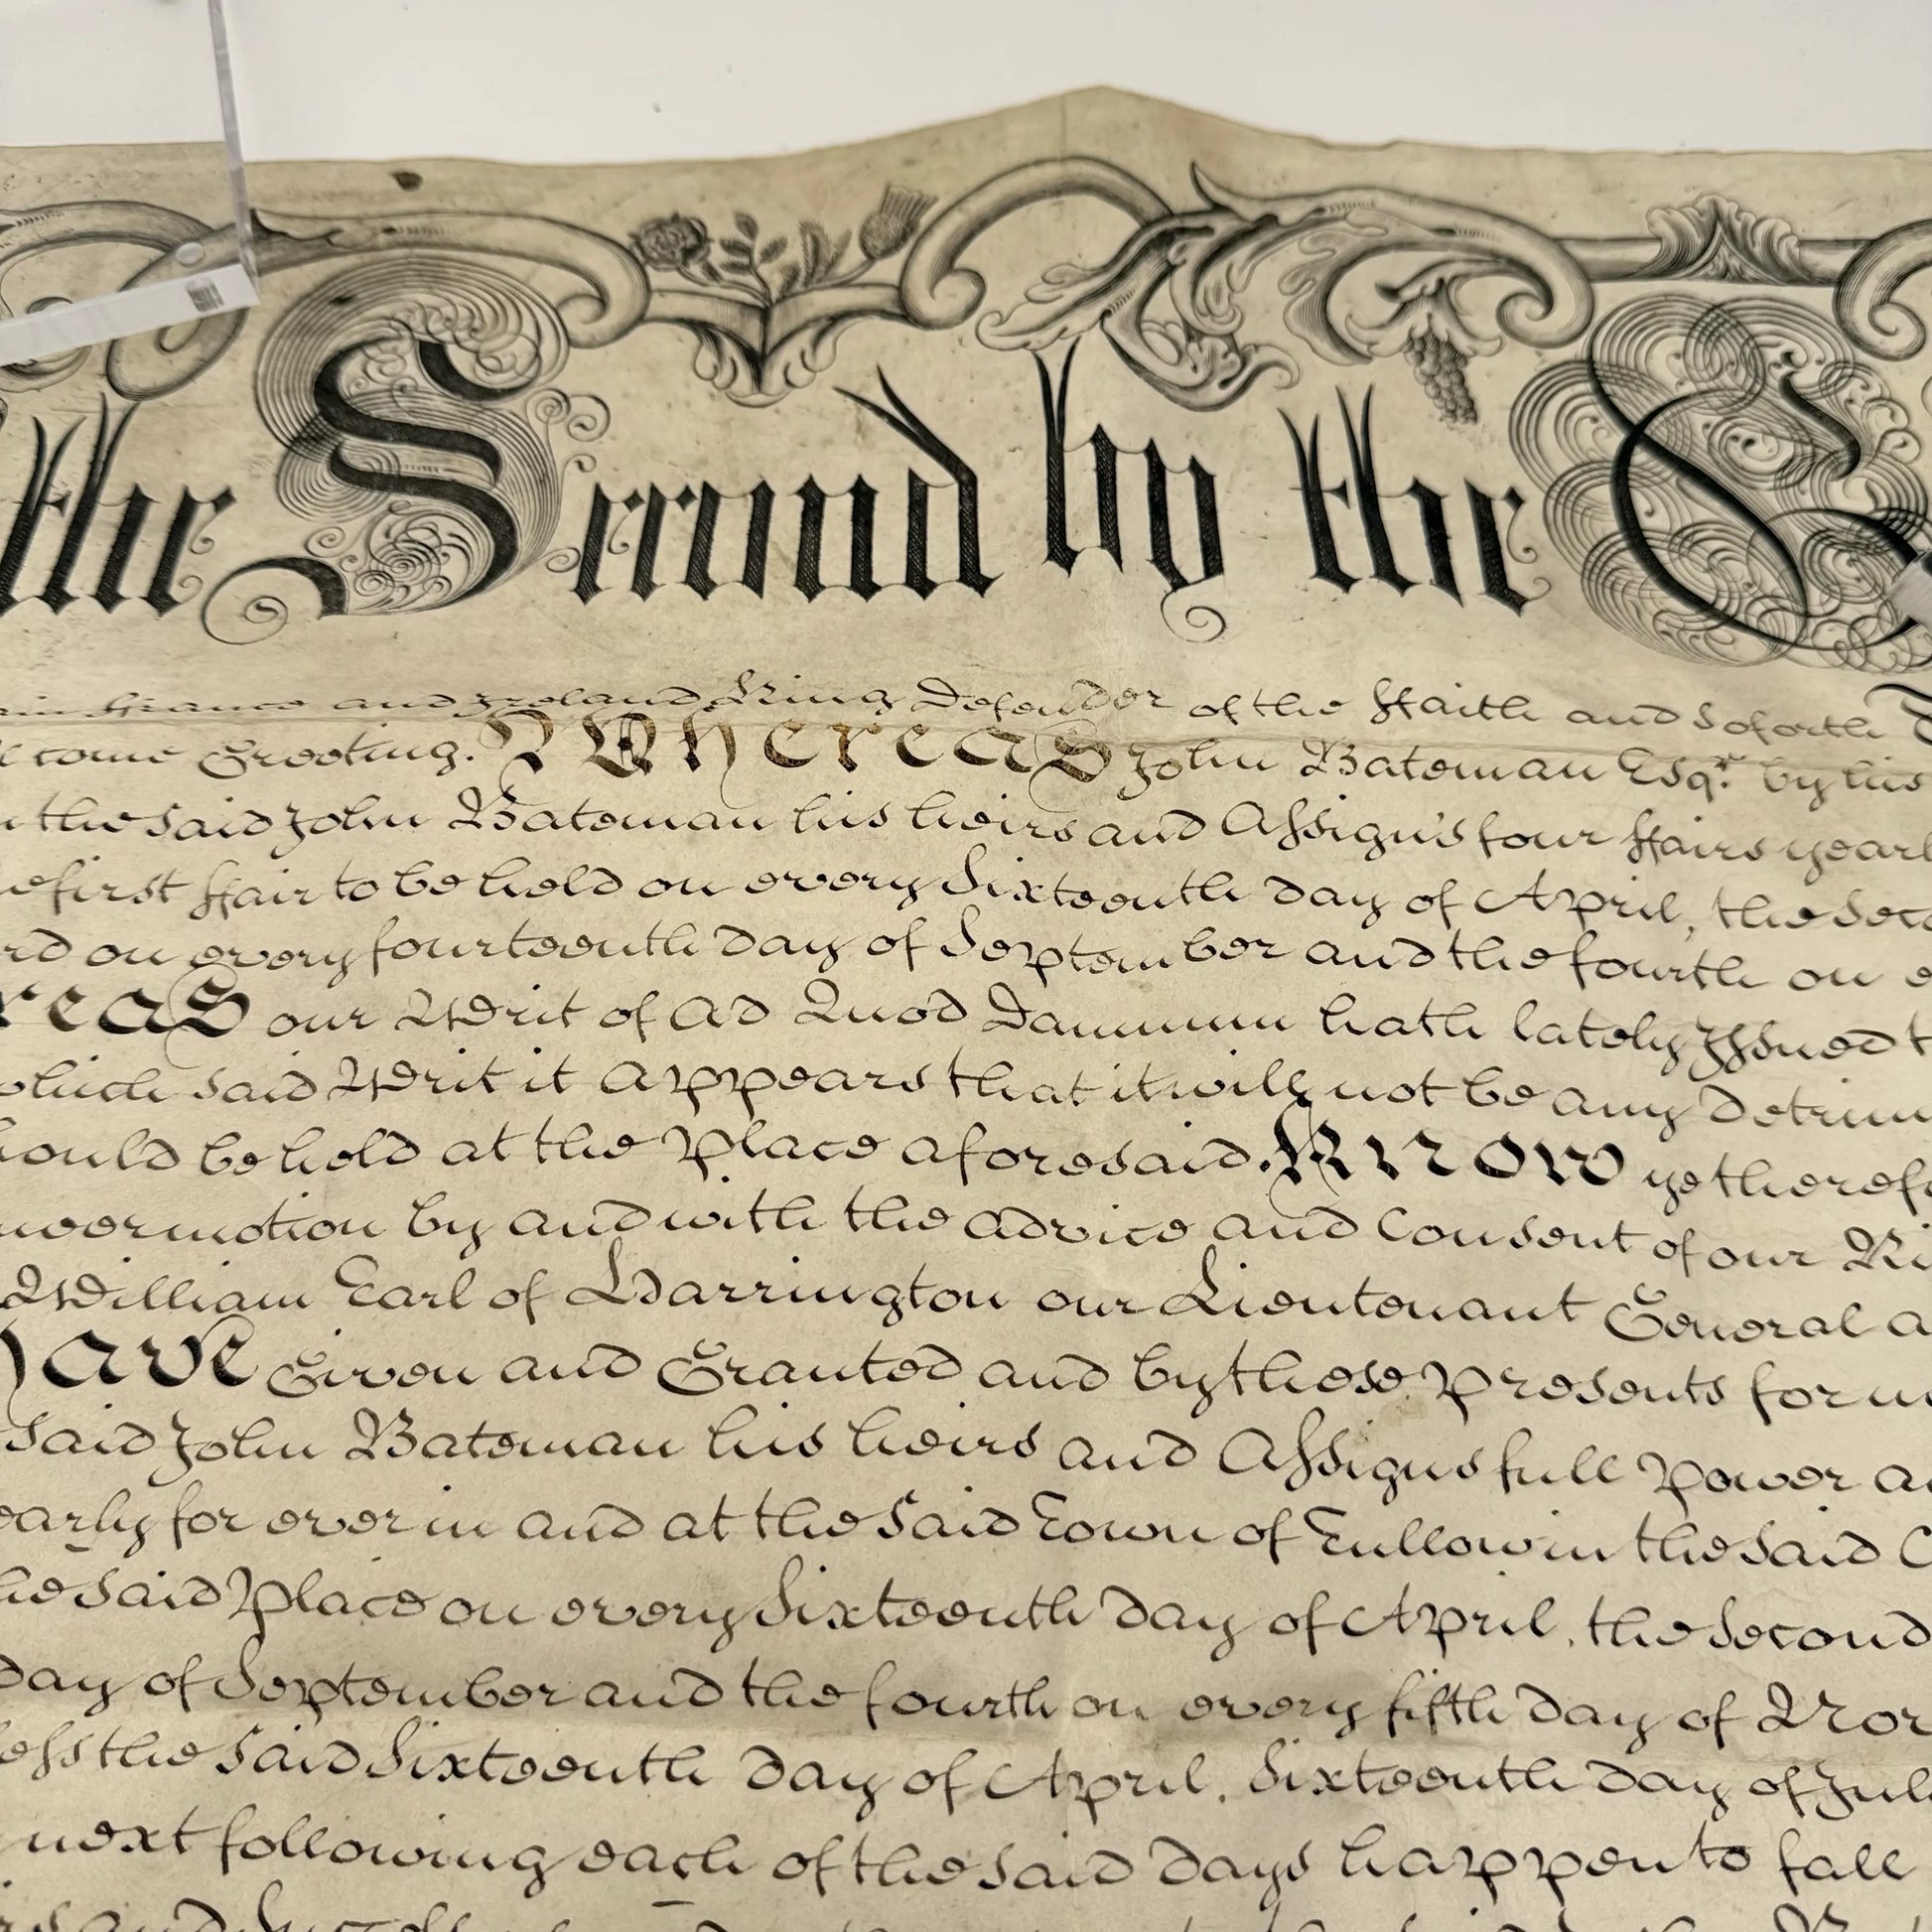 the Second by the G
ain ffrance and Ireland King Defender of the ffaith and soforth
ll come Greeting. Whereas John Bateman Esqr. by his
the said John Bateman his heirs and Assigns four ffairs yearl
efirst ffair to be held on every Sixteenth day of April, the Seco
rd on every fourteenth day of September and the fourth on e
reas our Writ of Ad Quod Damnum hath lately Issued t
which said Writ it appears that it will not be any Detrim
hould be held at the Place aforesaid. Know ye theref
meermotion by and with the Advice and Consent of our Ri
William Earl of Harrington our Lieutenant General a
Have Given and Granted and by these Presents for u
said John Bateman his heirs and Assigns full Power a
early for ever in and at the said Town of Tullow in the said C
he said Place on every Sixteenth day of April, the Second
day of September and the fourth on every fifth day of Nov
ess the said Sixteenth day of April, Sixteenth day of Jul
next following each of the said days happen to fall